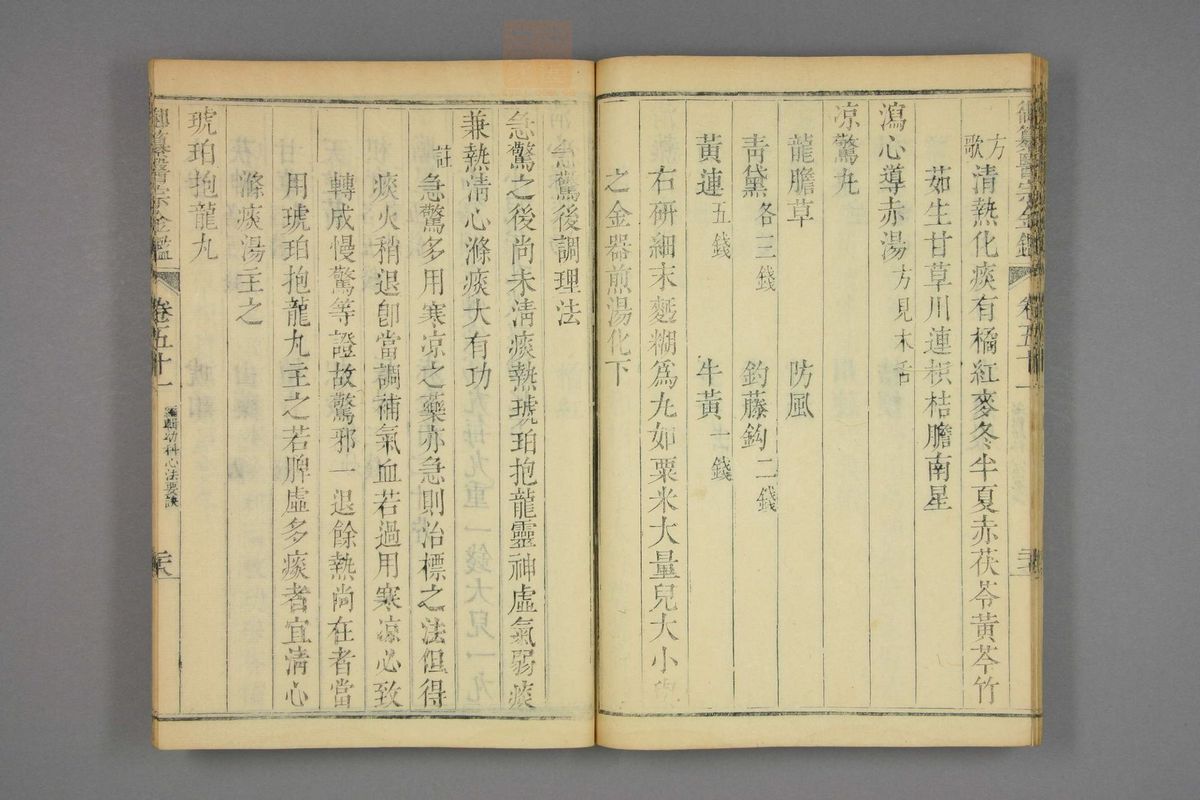 御纂醫宗金鑑 卷五十一
方歌 清熱化痰有橘紅麥冬半夏赤茯苓黃芩竹
茹生甘草川連枳桔膽南星
瀉心導赤湯 方見木舌
涼驚丸
龍膽草 防風
青黛各三錢 鈎藤鈎二錢
黃連五錢 牛黃一錢
右研細末麪糊爲丸如粟米大量兒大小
之金器煎湯化下
急驚後調理法
急驚之後尚未清痰熱琥珀抱龍靈神虛氣弱痰
兼熱清心滌痰大有功
註 急驚多用寒凉之藥亦急則治標之法但得
痰火稍退卽當調補氣血若過用寒凉必致
轉成慢驚等證故驚邪一退餘熱尚在者當
用琥珀抱龍丸主之若脾虛多痰者宜清心
滌痰湯主之
琥珀抱龍丸
御纂醫宗金鑑 卷五十一 編輯幼科心法要訣 二六